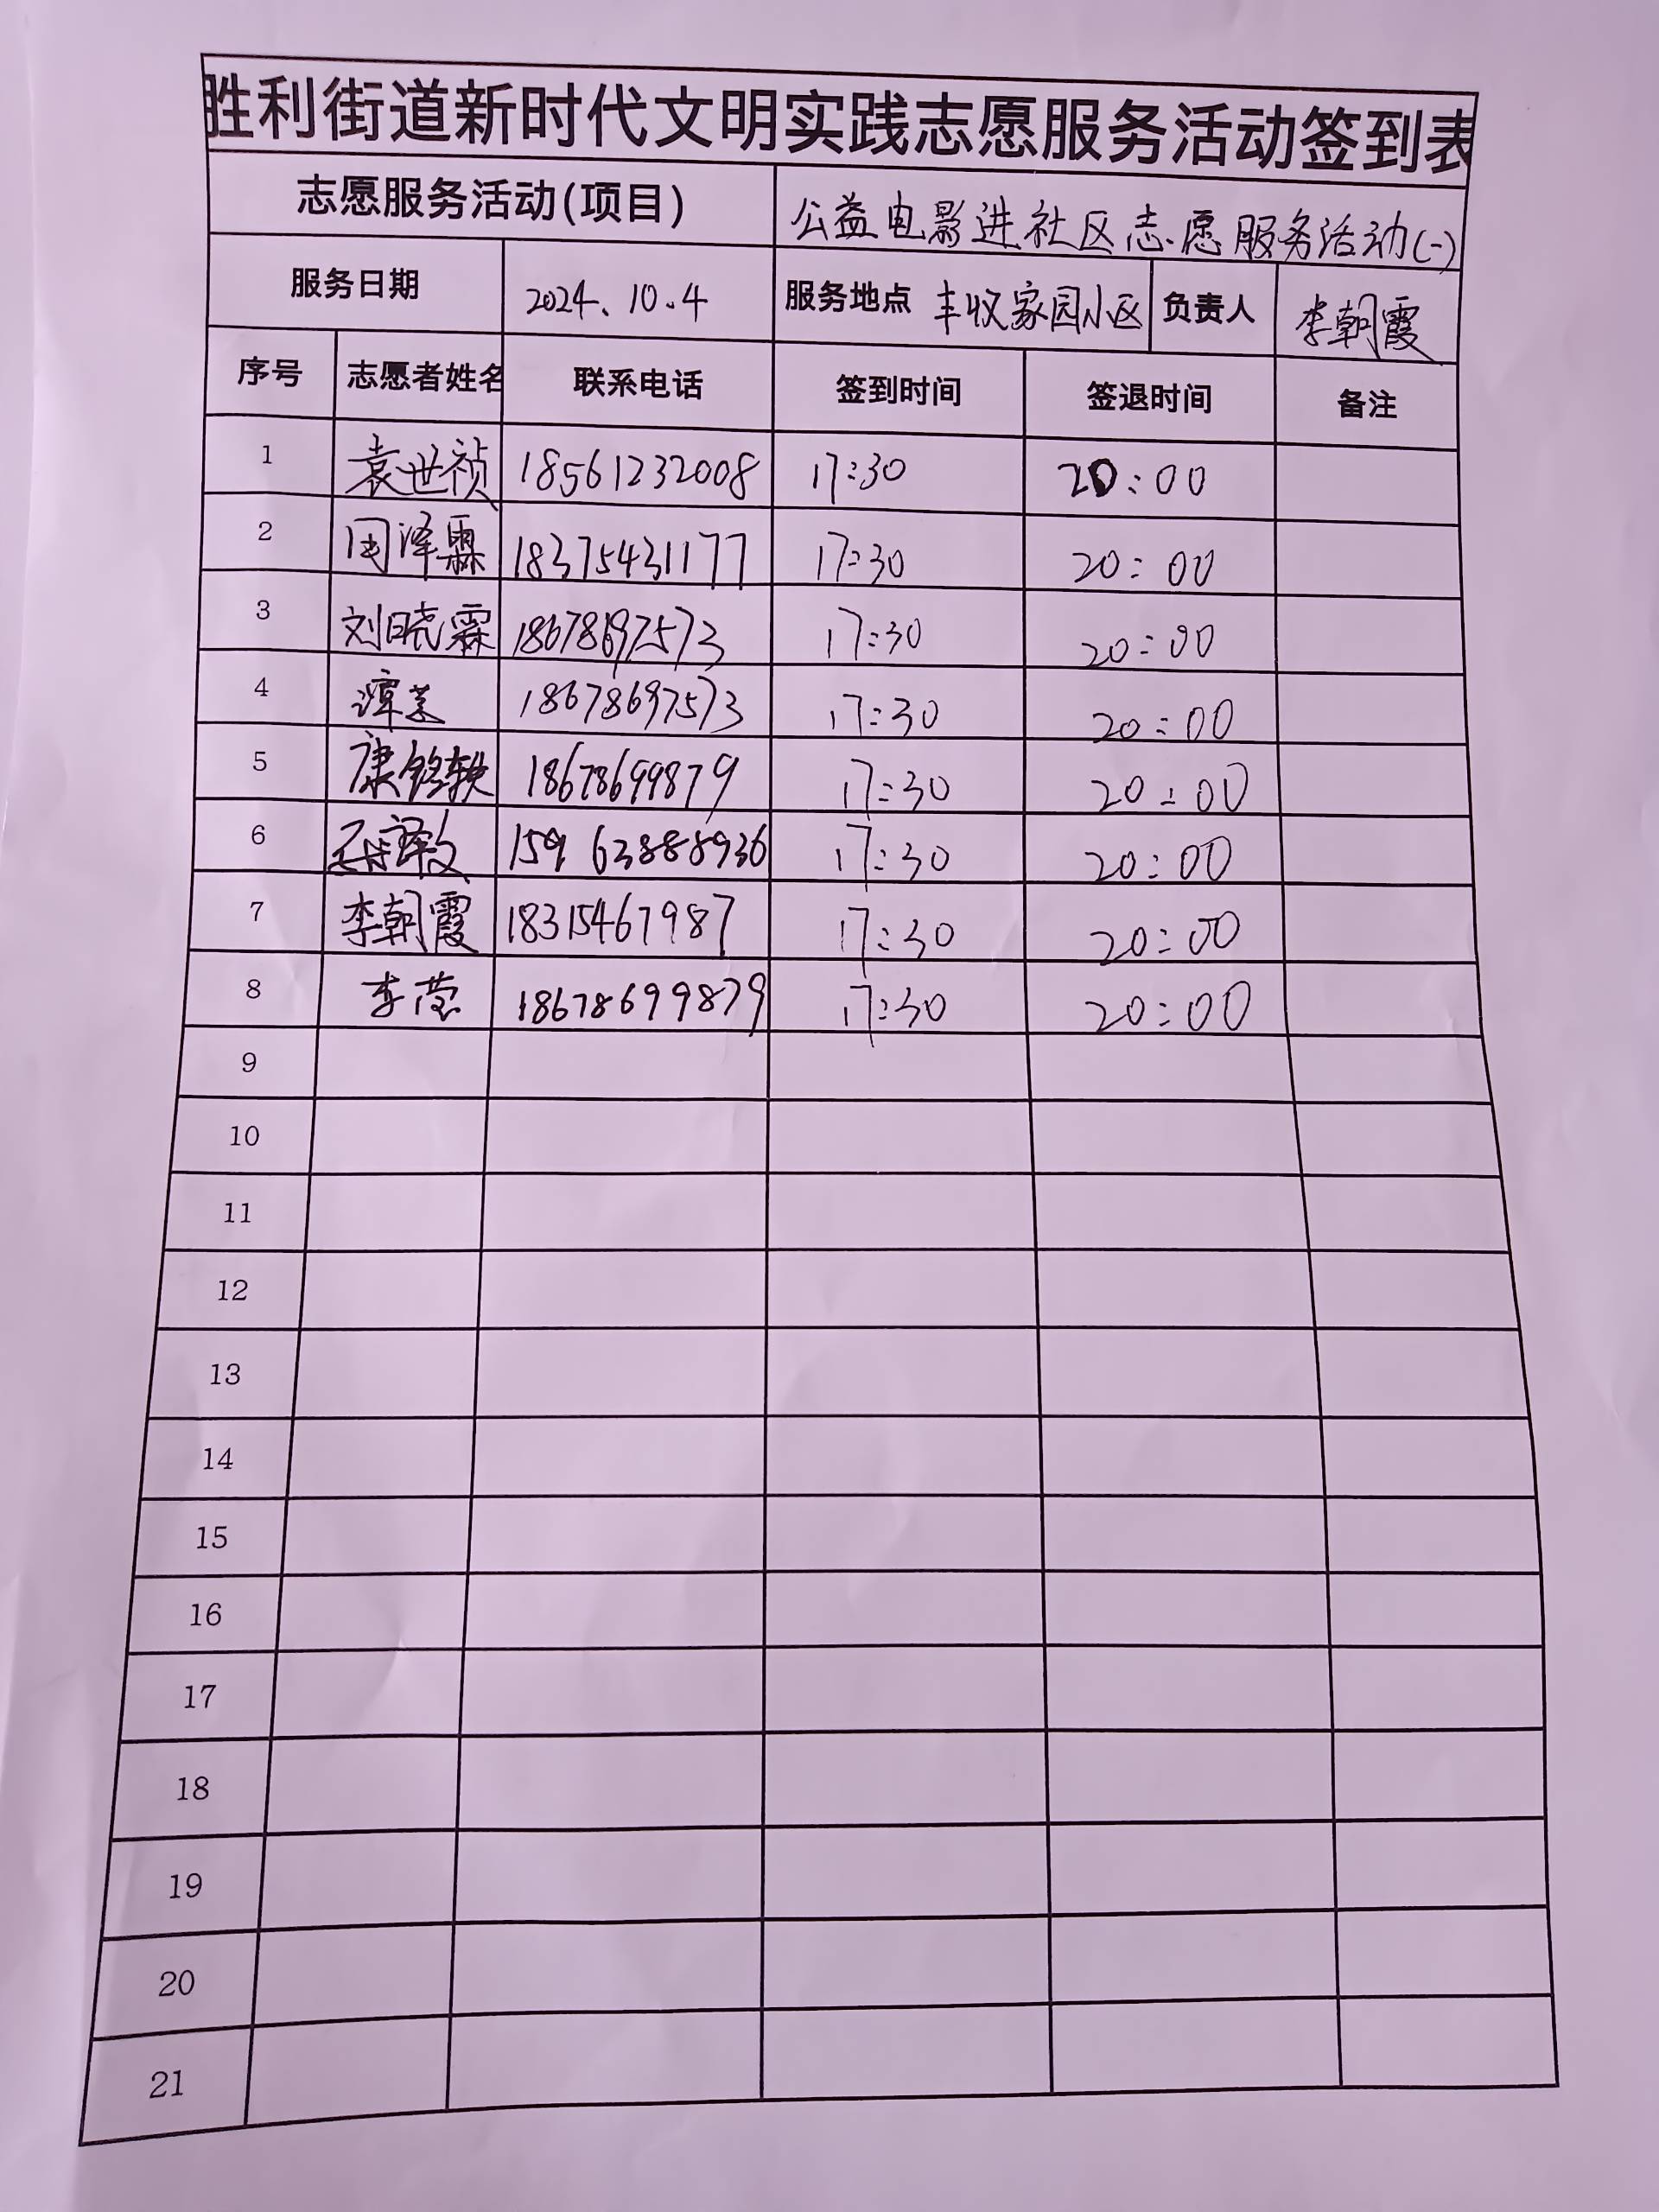 胜利街道新时代文明实践志愿服务活动签到表
志愿服务活动(项目) 公益电影进社区志愿服务活动(一)
服务日期 2024.10.4 服务地点 丰收家园小区 负责人 李朝霞
序号 志愿者姓名 联系电话 签到时间 签退时间 备注
1 袁世祯 18561232008 17:30 20:00
2 周泽霖 18375431177 17:30 20:00
3 刘晓霖 18678697573 17:30 20:00
4 18678697573 17:30 20:00
5 康铭轶 18678699879 17:30 20:00
6 15963888936 17:30 20:00
7 李朝霞 18315467987 17:30 20:00
8 李莹 18678699879 17:30 20:00
9
10
11
12
13
14
15
16
17
18
19
20
21